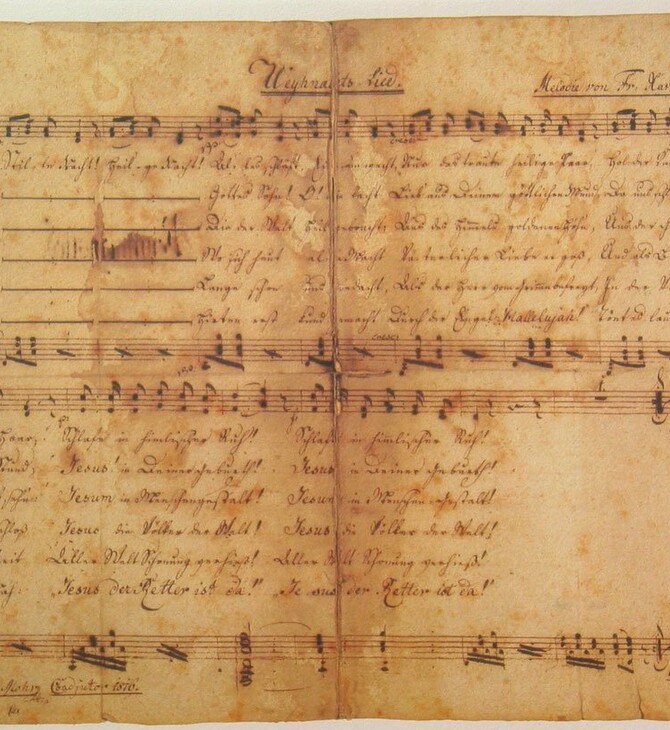 Weyhnachts-Lied.
Melodie von Fr. Xav
Stil-le Nacht! Heil-ge Nacht! Al-les schläft Ein wacht, Nur das traute heilige Paar, Hol der
cresc:
Gottes Sohn! O! lacht Lieb aus Deinem göttlichen Mund, Da uns
Die der Welt Heil gebracht, Aus des Himmels goldenen Höhn, Aus der
Wo sich heut alle Macht Väterlicher Liebe ergoß, Und als
Lange schon Uns bedacht, Als der Herr vom Grimme befreyt, In der
Hirten erst kund gemacht Durch der Engel Hallelujah! Tönt es
cresc:
Haar, Schlafe in himlischer Ruh! Schlafe in himlischer Ruh!
Stund, Jesus! in Deiner Geburth! Jesus in Deiner Geburth!
Jesum in Menschengestalt! Jesum in Menschengestalt!
Jesus die Völker der Welt! Jesus die Völker der Welt!
Aller Welt Schonung verhieß! Aller Welt Schonung verhieß!
"Jesus der Retter ist da!" "Jesus der Retter ist da!"
Mohr Coadjutor 1816.